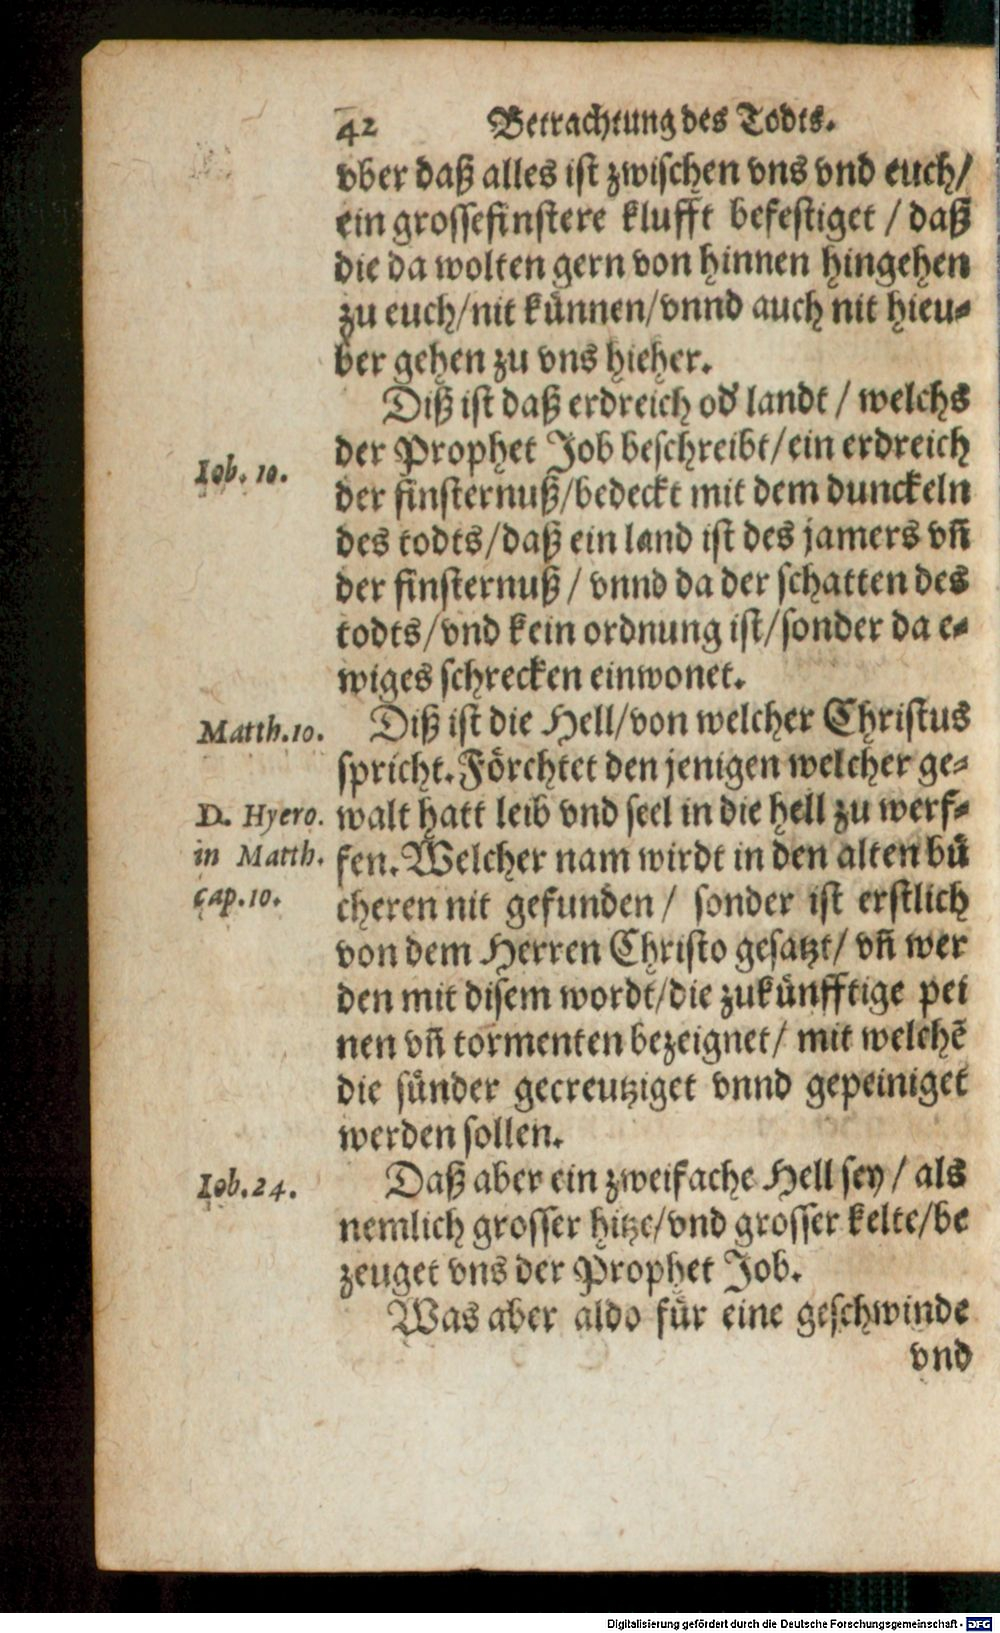 42 Betrachtung des Todts.
vber daß alles ist zwischen vns vnd euch/
ein grosse finstere klufft befestiget / daß
die da wolten gern von hinnen hingehen
zu euch/nit künnen/vnnd auch nit hieu-
ber gehen zu vns hieher.
Diß ist daß erdreich od' landt / welchs
der Prophet Job beschreibt/ein erdreich
Iob. 10.
der finsternuß/bedeckt mit dem dunckeln
des todts/daß ein land ist des jamers vn̄
der finsternuß / vnnd da der schatten des
todts/vnd kein ordnung ist/sonder da e-
wiges schrecken einwonet.
Matth.10. Diß ist die Hell/von welcher Christus
spricht. Förchtet den jenigen welcher ge-
D. Hyero. walt hatt leib vnd seel in die hell zu werf-
in Matth. fen. Welcher nam wirdt in den alten bü
cap.10. cheren nit gefunden / sonder ist erstlich
von dem Herren Christo gesatzt/ vn̄ wer
den mit disem wordt/die zukünfftige pei
nen vn̄ tormenten bezeignet/ mit welchē
die sünder gecreutziget vnnd gepeiniget
werden sollen.
Iob.24. Daß aber ein zweifache Hell sey / als
nemlich grosser hitze/vnd grosser kelte/be
zeuget vns der Prophet Job.
Was aber aldo für eine geschwinde
vnd
Digitalisierung gefördert durch die Deutsche Forschungsgemeinschaft - DFG